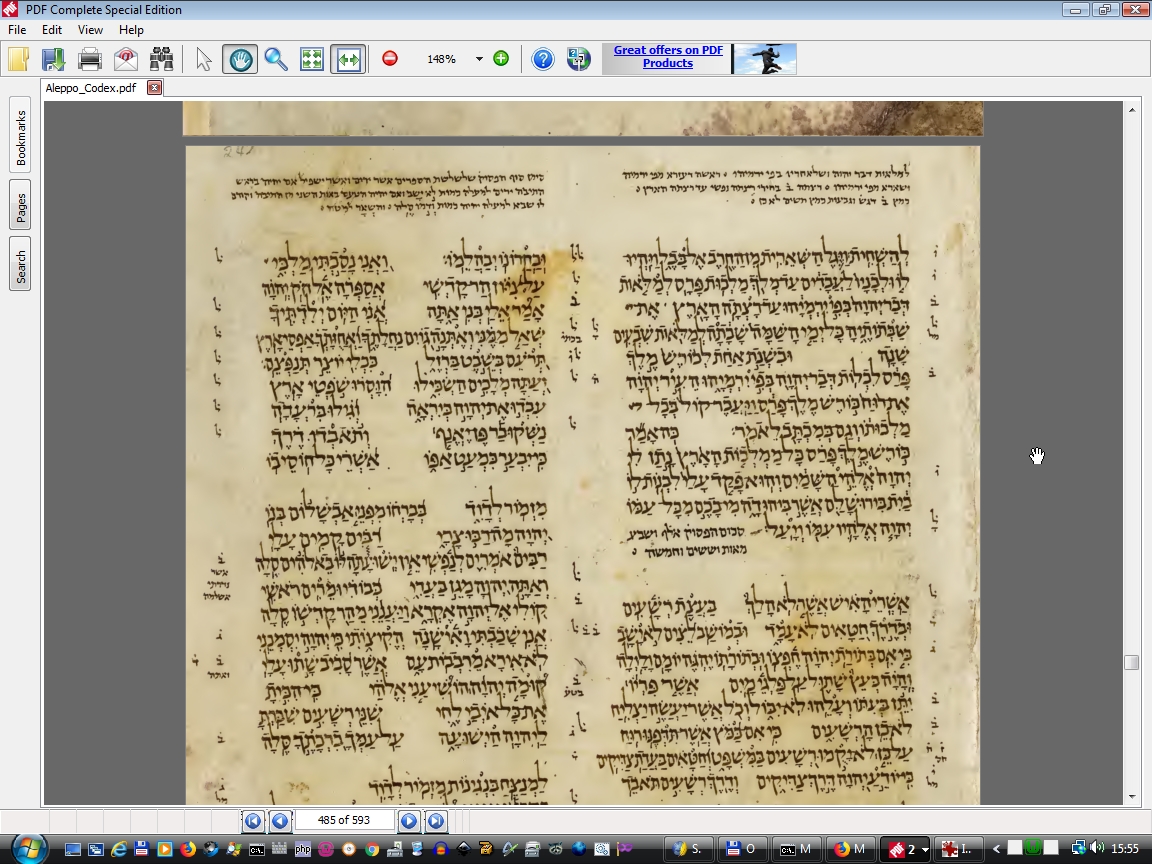 PDF Complete Special Edition
File Edit View Help
148%
Great offers on PDF Products
Aleppo_Codex.pdf
Bookmarks
Pages
Search
למלאות דבר יהוה
להשחית ויגל השארית מן החרב אל בבל ויהיו
לו ולבניו לעבדים עד מלך מלכות פרס למלאות
דבר יהוה בפי ירמיהו עד רצתה הארץ את
שבתותיה כל ימי השמה שבתה למלאות שבעים
שנה ובשנת אחת לכורש מלך
פרס לכלות דבר יהוה בפי ירמיהו העיר יהוה
את רוח כורש מלך פרס ויעבר קול בכל
מלכותו וגם במכתב לאמר׃ כה אמר
כורש מלך פרס כל ממלכות הארץ נתן לי
יהוה אלהי השמים והוא פקד עלי לבנות לו
בית בירושלם אשר ביהודה מי בכם מכל עמו
יהוה אלהיו עמו ויעל סכום הפסוק אלף ושבע
מאות וששים וחמשה
אשרי האיש אשר לא הלך בעצת רשעים
ובדרך חטאים לא עמד ובמושב לצים לא ישב
כי אם בתורת יהוה חפצו ובתורתו יהגה יומם ולילה
והיה כעץ שתול על פלגי מים אשר פריו
יתן בעתו ועלהו לא יבול וכל אשר יעשה יצליח
לא כן הרשעים כי אם כמץ אשר תדפנו רוח
על כן לא יקמו רשעים במשפט וחטאים בעדת צדיקים
כי יודע יהוה דרך צדיקים ודרך רשעים תאבד
ובחרונו יבהלמו׃ ואני נסכתי מלכי
על ציון הר קדשי אספרה אל חק יהוה
אמר אלי בני אתה אני היום ילדתיך
שאל ממני ואתנה גוים נחלתך ואחזתך אפסי ארץ
תרעם בשבט ברזל ככלי יוצר תנפצם
ועתה מלכים השכילו הוסרו שפטי ארץ
עבדו את יהוה ביראה וגילו ברעדה
נשקו בר פן יאנף ותאבדו דרך
כי יבער כמעט אפו אשרי כל חוסי בו
מזמור לדויד בברחו מפני אבשלום בנו
יהוה מה רבו צרי רבים קמים עלי
רבים אמרים לנפשי אין ישועתה לו באלהים סלה
ואתה יהוה מגן בעדי כבודי ומרים ראשי
קולי אל יהוה אקרא ויענני מהר קדשו סלה
אני שכבתי ואישנה הקיצותי כי יהוה יסמכני
לא אירא מרבבות עם אשר סביב שתו עלי
קומה יהוה הושיעני אלהי כי הכית
את כל איבי לחי שני רשעים שברת
ליהוה הישועה על עמך ברכתך סלה
למנצח בנגינות מזמור לדויד
485 of 593
15:55